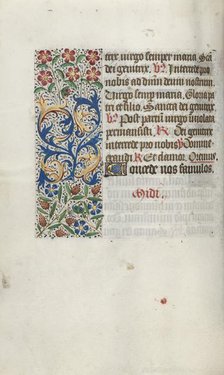 trix virgo semper maria
dei genitrix. V. Intercede pro
nobis ad dnm deum nostrum
Virgo semp maria. Gloria pa
tri et filio. Sancta dei genitrix
V. Post partū virgo inviolata
permansisti. R. Dei genitrix
intercede pro nobis.
R. Et clamor. Oremus.
Concede nos famulos
Midi.